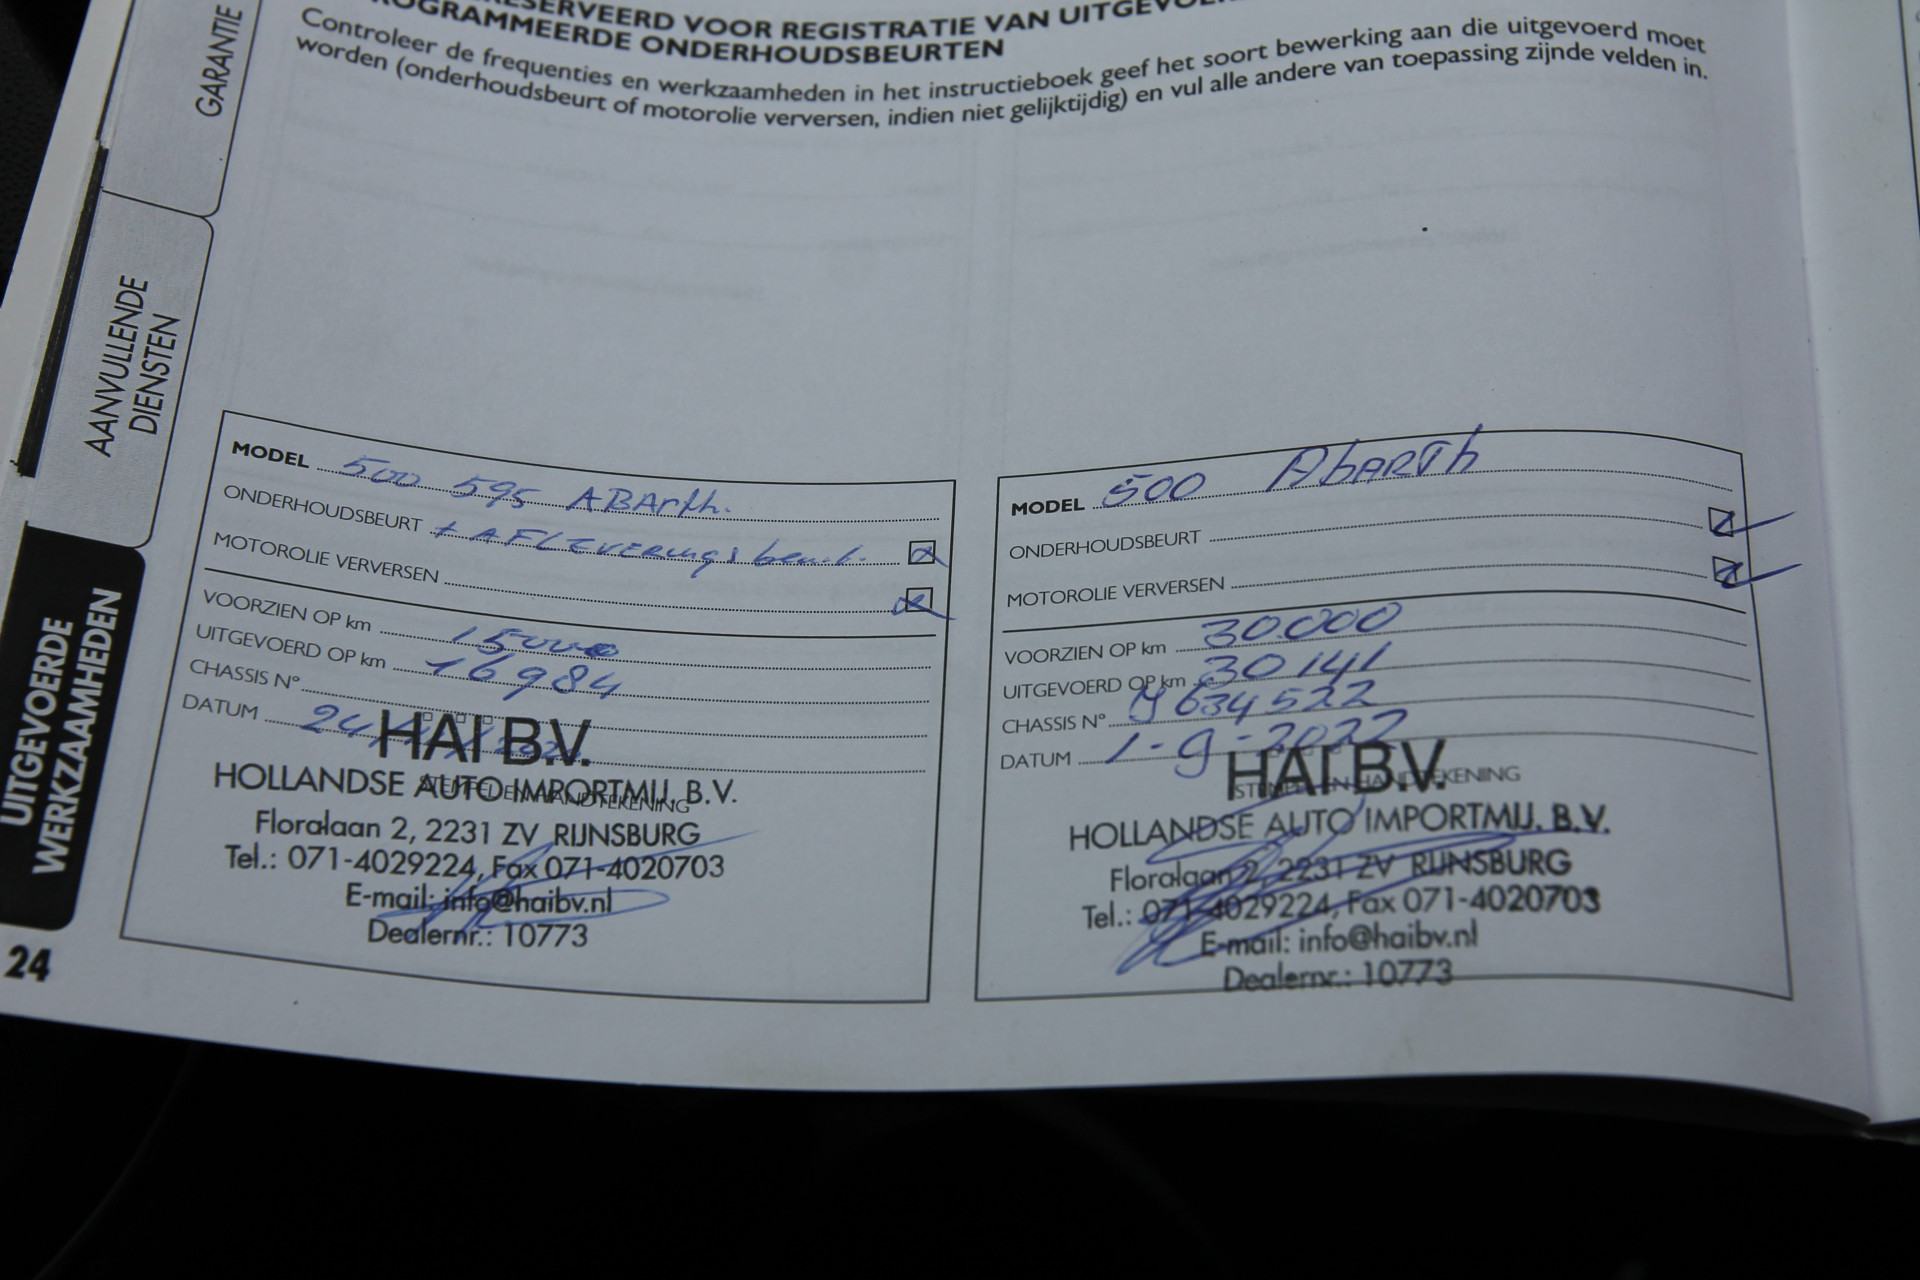 GARANTIE
AANVULLENDE
DIENSTEN
UITGEVOERDE
WERKZAAMHEDEN
24
VOOR REGISTRATIE VAN
ONDERHOUDSBEURTEN
Controleer de frequenties en werkzaamheden in het instructieboek geef het soort bewerking aan die uitgevoerd moet
worden (onderhoudsbeurt of motorolie verversen, indien niet gelijktijdig) en vul alle andere van toepassing zijnde velden in.
MODEL 500 595 ABArth.
ONDERHOUDSBEURT + AFLEVERINGSbeurt.
MOTOROLIE VERVERSEN
VOORZIEN OP km 15000
UITGEVOERD OP km 16984
CHASSIS N°
DATUM 24
STEMPEL EN HANDTEKENING
HAI B.V.
HOLLANDSE AUTO IMPORTMIJ. B.V.
Floralaan 2, 2231 ZV RIJNSBURG
Tel.: 071-4029224, Fax 071-4020703
E-mail: info@haibv.nl
Dealernr.: 10773
MODEL 500 AbARTh
ONDERHOUDSBEURT
MOTOROLIE VERVERSEN
VOORZIEN OP km 30.000
UITGEVOERD OP km 30141
CHASSIS N° 634522
DATUM 1-9-2022
STEMPEL EN HANDTEKENING
HAI B.V.
HOLLANDSE AUTO IMPORTMIJ. B.V.
Floralaan 2, 2231 ZV RIJNSBURG
Tel.: 071-4029224, Fax 071-4020703
E-mail: info@haibv.nl
Dealernr.: 10773